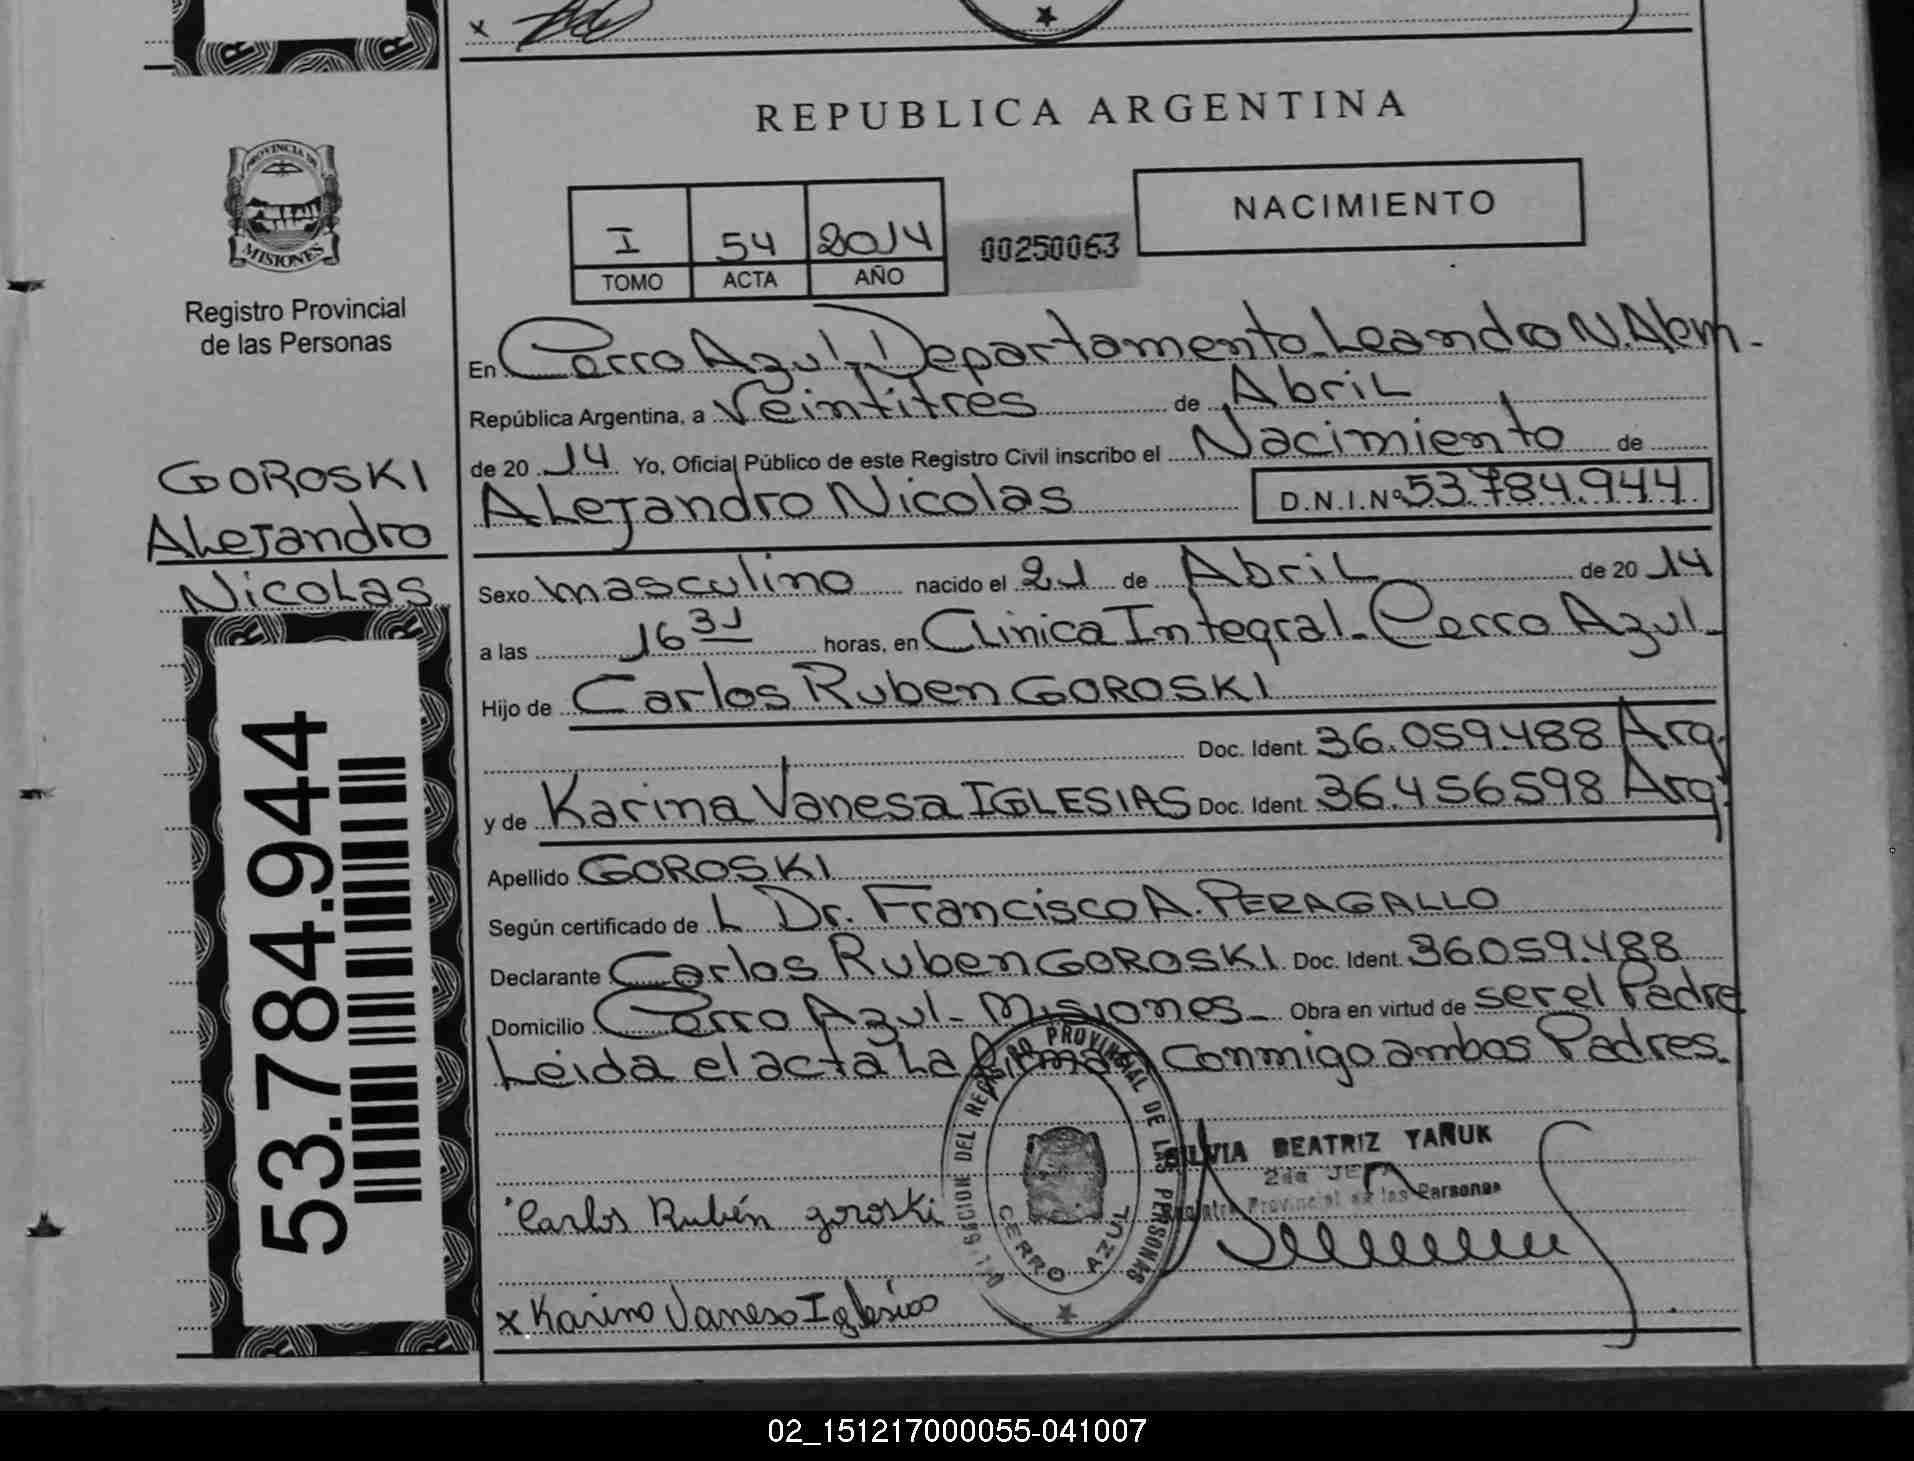 x
REPUBLICA ARGENTINA
PROVINCIA DE
MISIONES
Registro Provincial
de las Personas
I 54 2014
TOMO ACTA AÑO
00250063
NACIMIENTO
En Cerro Azul, Departamento Leandro N. Alem.
República Argentina, a Veintitres de Abril
de 20 14 Yo, Oficial Público de este Registro Civil inscribo el Nacimiento de
Alejandro Nicolas D.N.I.Nº 53.784.944
GOROSKI
Alejandro
Nicolas
53.784.944
Sexo masculino nacido el 21 de Abril de 20 14
a las 16 31 horas, en Clinica Integral - Cerro Azul -
Hijo de Carlos Ruben GOROSKI
Doc. Ident. 36.059.488 Arg.
y de Karina Vanesa IGLESIAS Doc. Ident. 36.456598 Arg.
Apellido GOROSKI
Según certificado de L Dr. Francisco A. PERAGALLO
Declarante Carlos Ruben GOROSKI Doc. Ident. 36059.488
Domicilio Cerro Azul - Misiones - Obra en virtud de ser el Padre
Leida el acta la firman conmigo ambos Padres.
REGISTRO PROVINCIAL DE LAS PERSONAS
CERRO AZUL
SILVIA BEATRIZ YAÑUK
2da JEFA
Registro Provincial de las Personas
Carlos Rubén goroski
x Karina Vanesa Iglesias
02_151217000055-041007